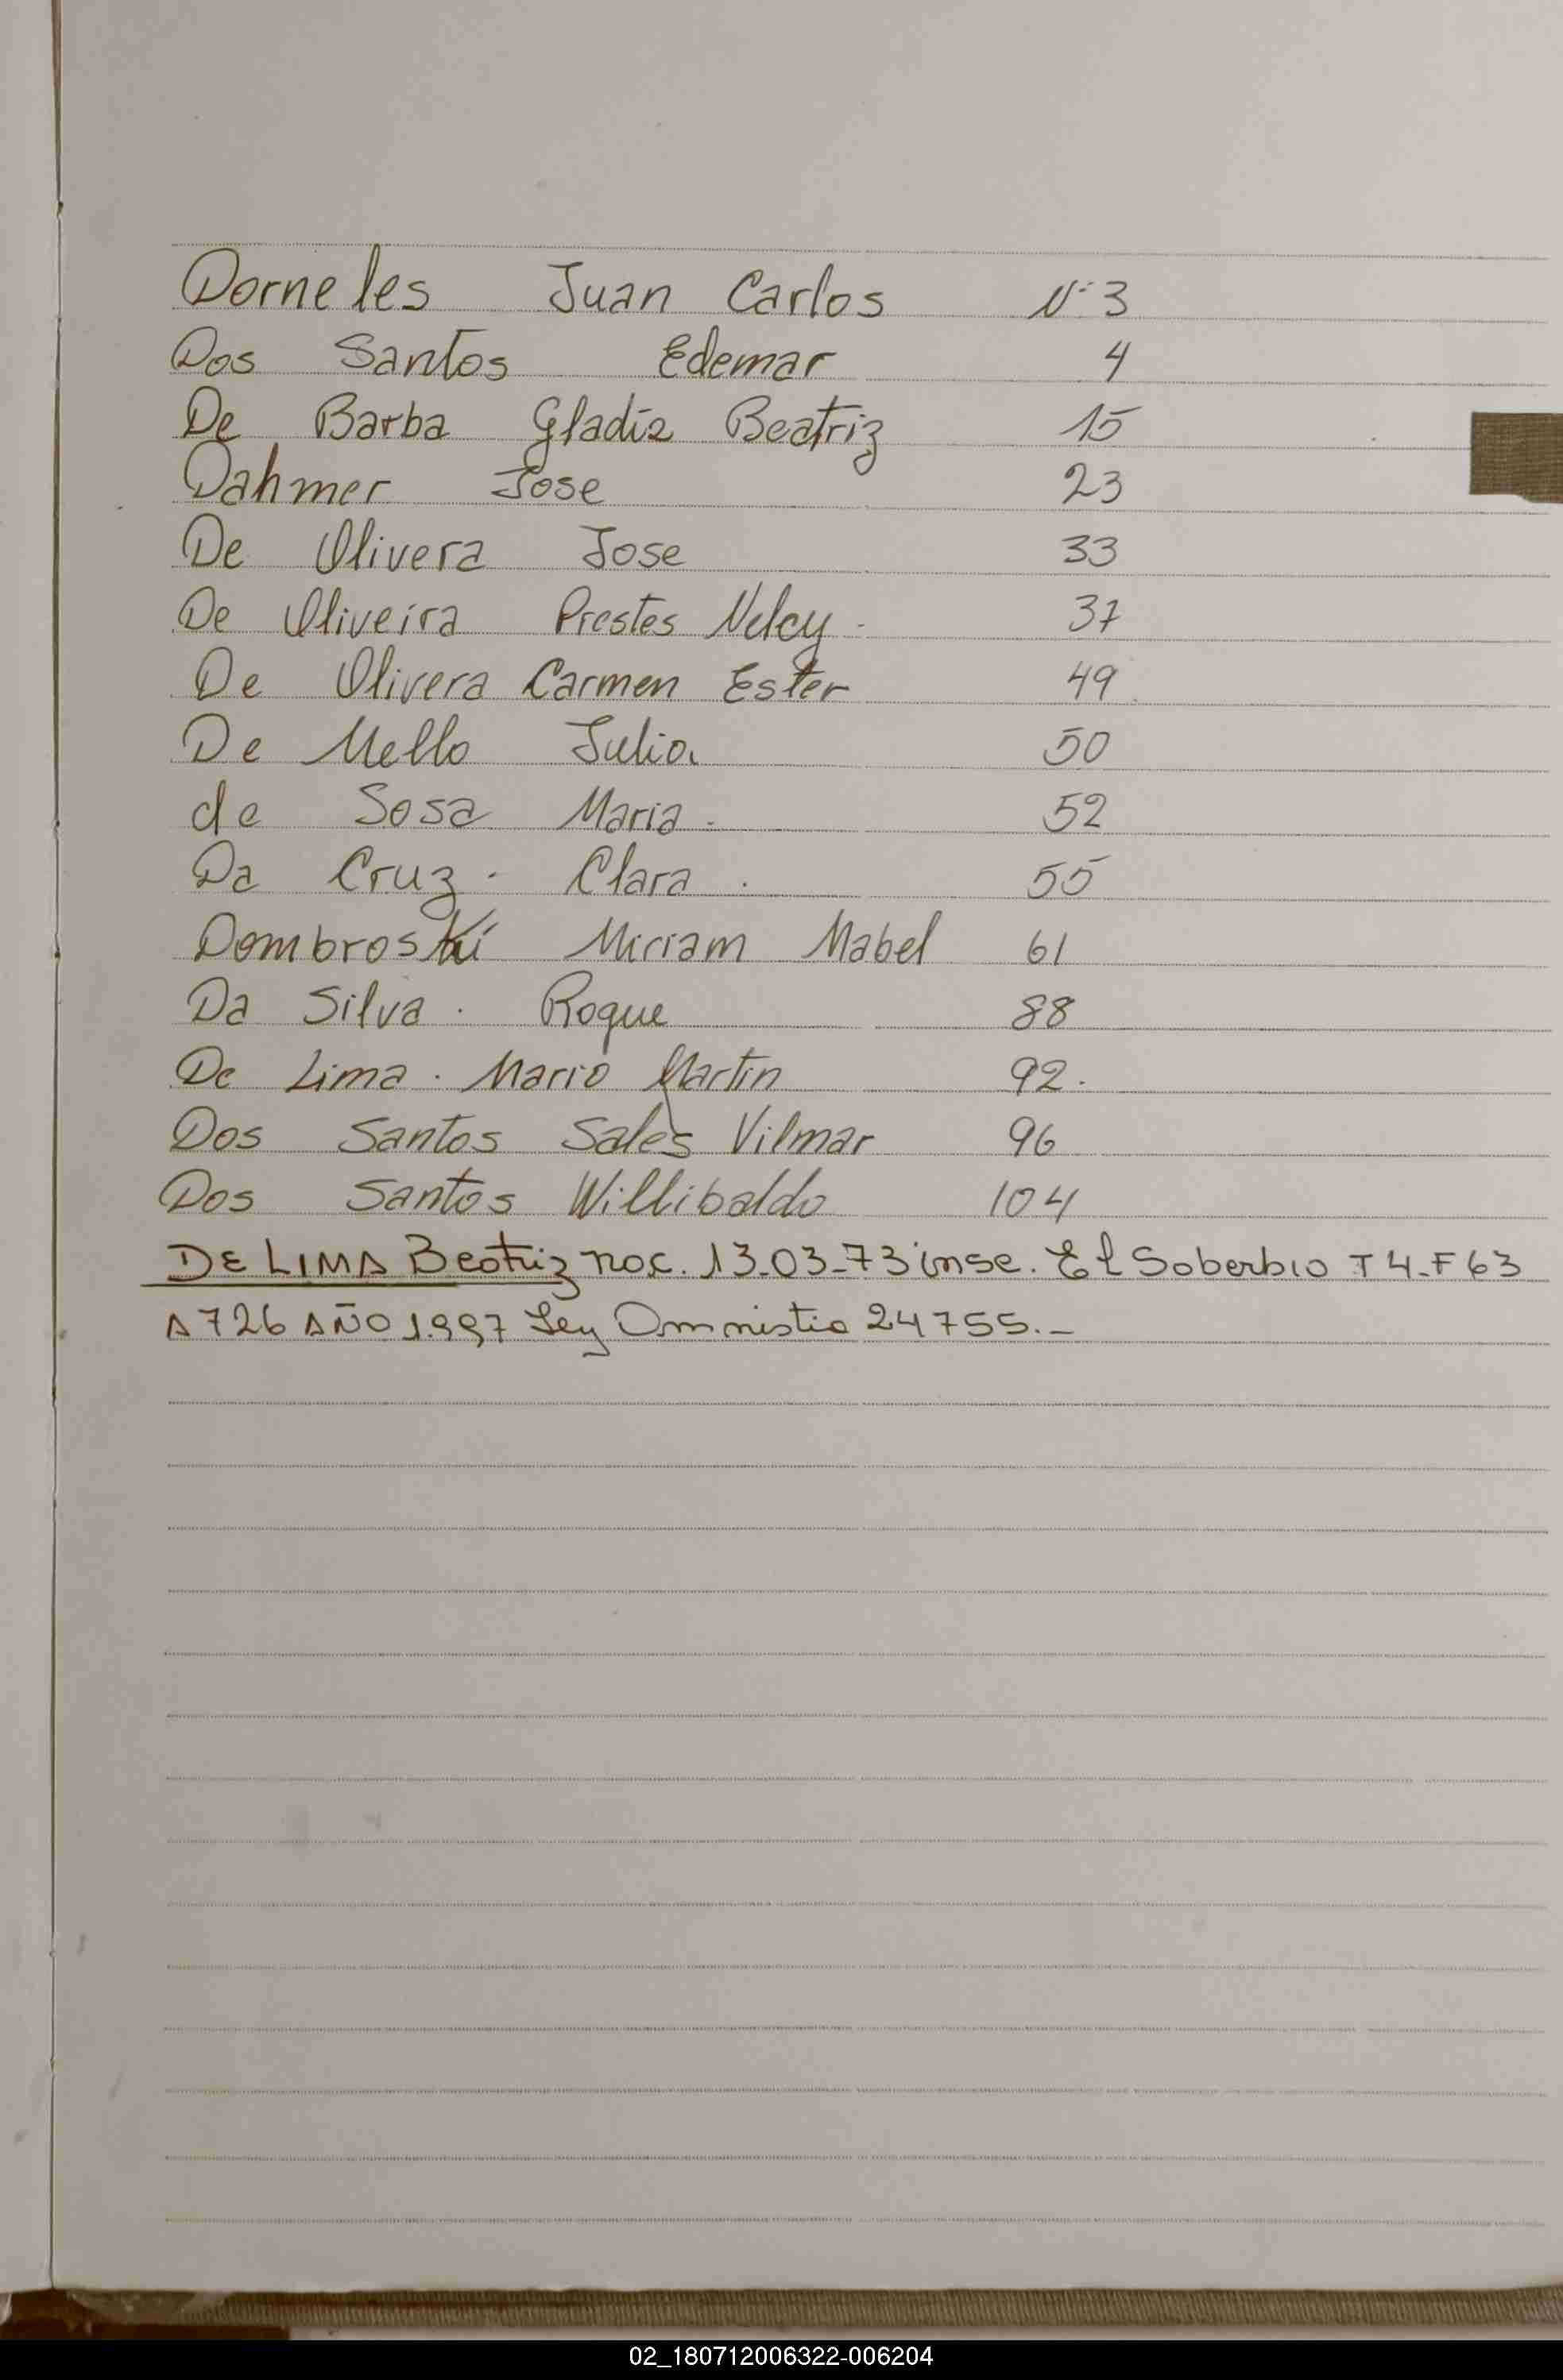 Dorneles Juan Carlos Nº 3
Dos Santos Edemar 4
De Barba Gladiz Beatriz 15
Dahmer Jose 23
De Olivera Jose 33
De Oliveira Prestes Nelcy - 37
De Olivera Carmen Ester 49
De Mello Julia 50
de Sosa Maria - 52
Da Cruz - Clara . 55
Dombroski Miriam Mabel 61
Da Silva . Roque 88
De Lima . Mario Martin 92.
Dos Santos Sales Vilmar 96
Dos Santos Willibaldo 104
DE LIMA Beatriz nac. 13-03-73 insc. El Soberbio T4-F63
A726 AÑO 1.997 Ley Omnistia 24755.-
02_180712006322-006204